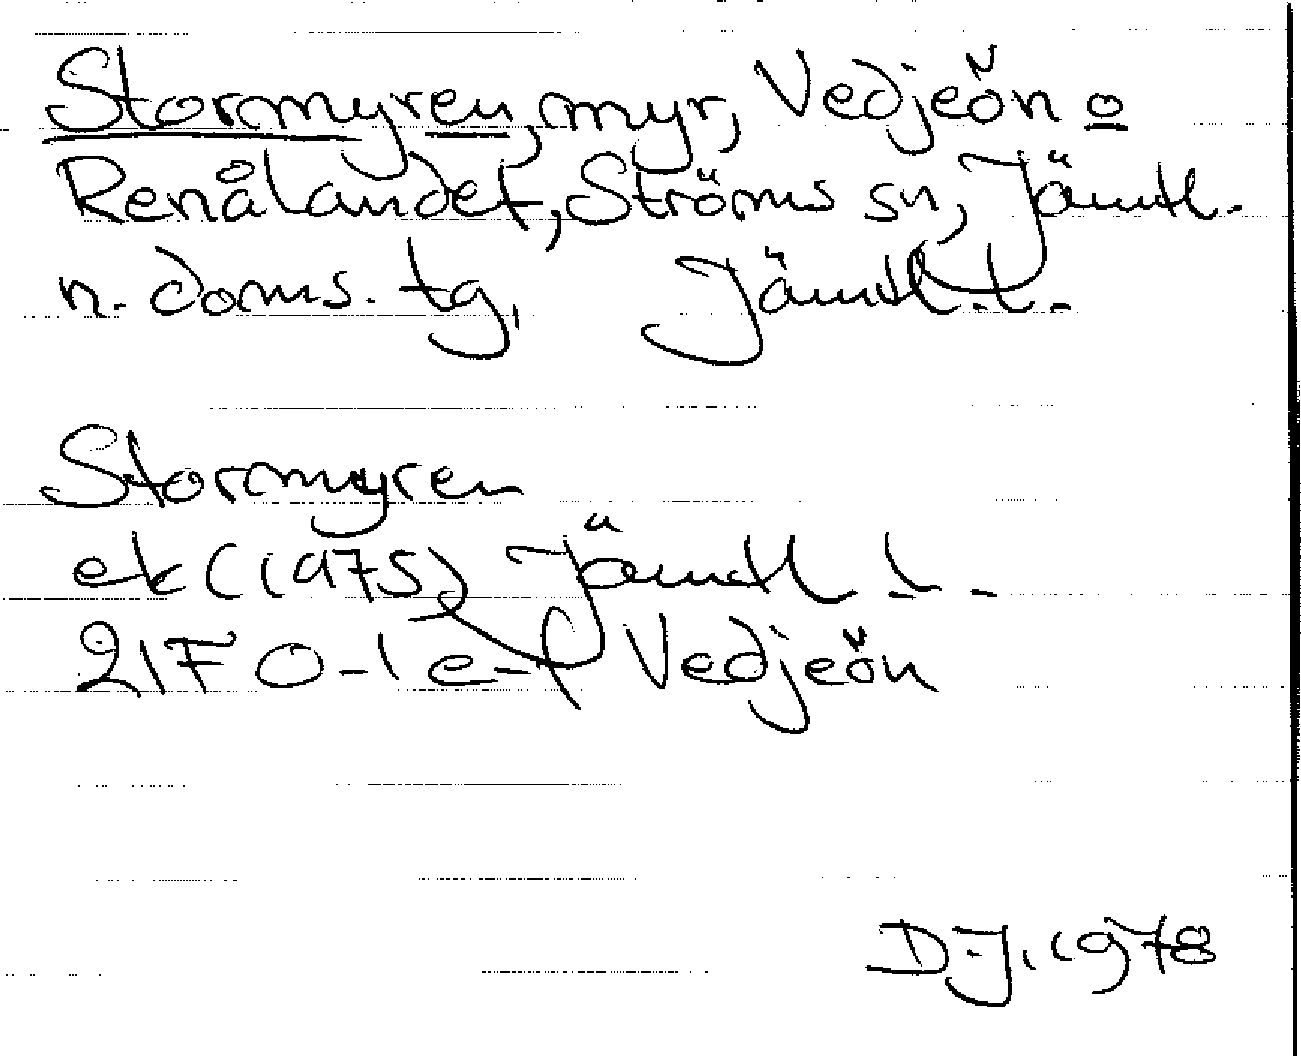 Stormyren, myr, Vedjeön o
Renålandet, Ströms sn, Jämtl.
n. doms. tg, Jämtl. l.
Stormyren
ek (1975) Jämtl l.
21F 0-1 e-f Vedjeön
D.J. 1978